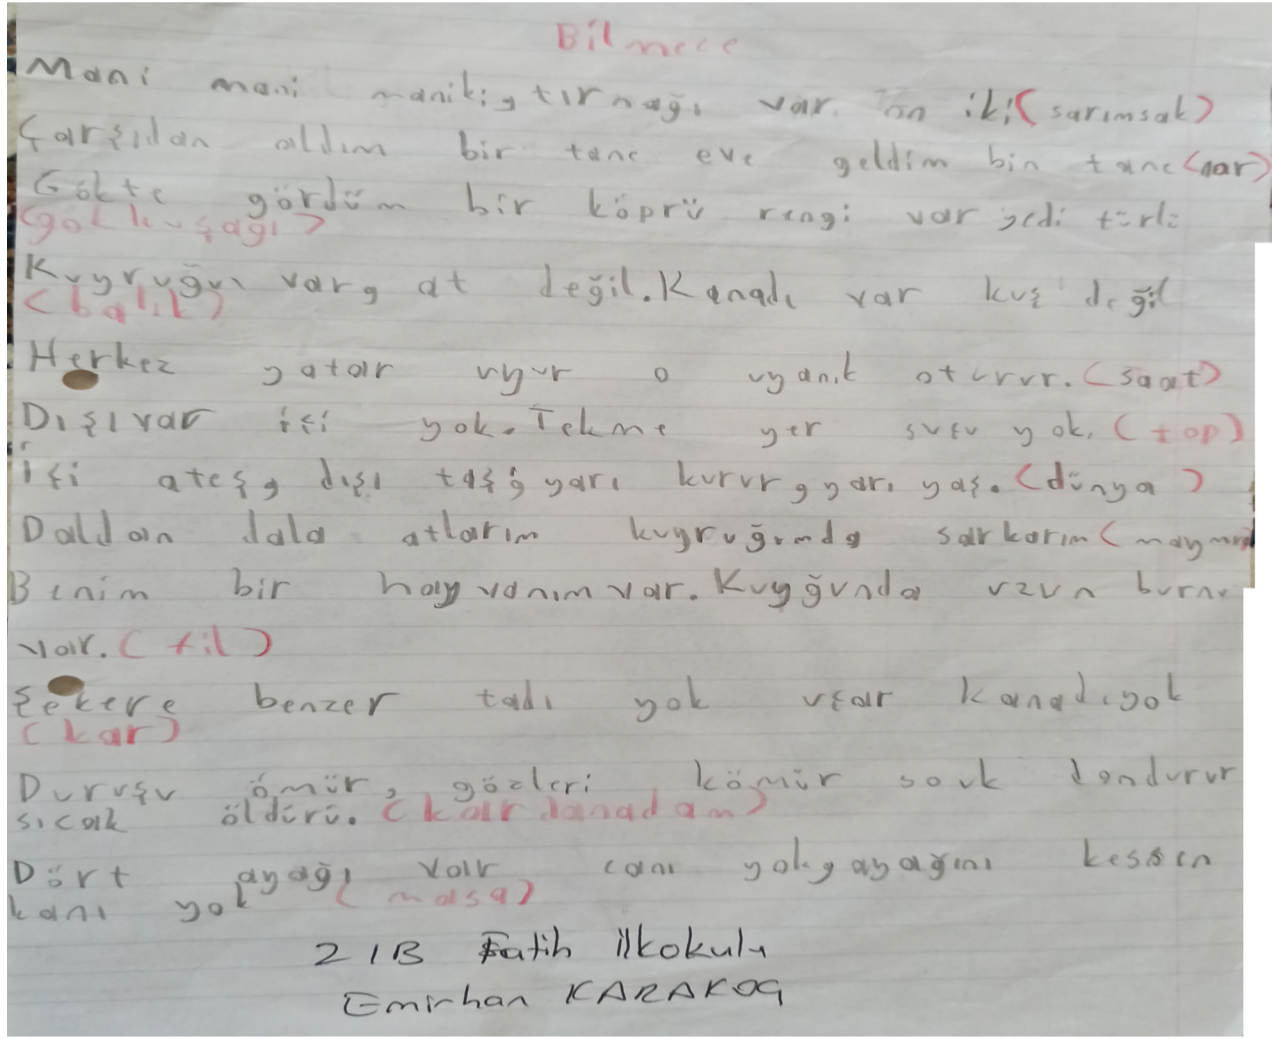 Bilmece
Mani mani maniki, tırnağı var. on iki (sarımsak)
Çarşıdan aldım bir tane eve geldim bin tane (nar)
Gökte gördüm bir köprü rengi var yedi türlü
(gökkuşağı)
Kuyruğu var, at değil. Kanadı var kuş değil
(balık)
Herkez yatar uyur o uyanık oturur. (saat)
Dışı var içi yok. Tekme yer suçu yok. (top)
İçi ateş, dışı taş, yarı kurur, yarı yaş. (dünya)
Daldan dala atlarım kuyruğumda sarkarım (maymun
Benim bir hayvanım var. Kuyğunda uzun burnu
var. (fil)
Şekere benzer tadı yok uçar kanadı yok
(kar)
Duruşu ömür, gözleri kömür souk dondurur
sıcak öldürü. (kardanadam)
Dört ayağı var canı yok, ayağını kessen
kanı yok (masa)
2/B Fatih ilkokulu
Emirhan KARAKOÇ